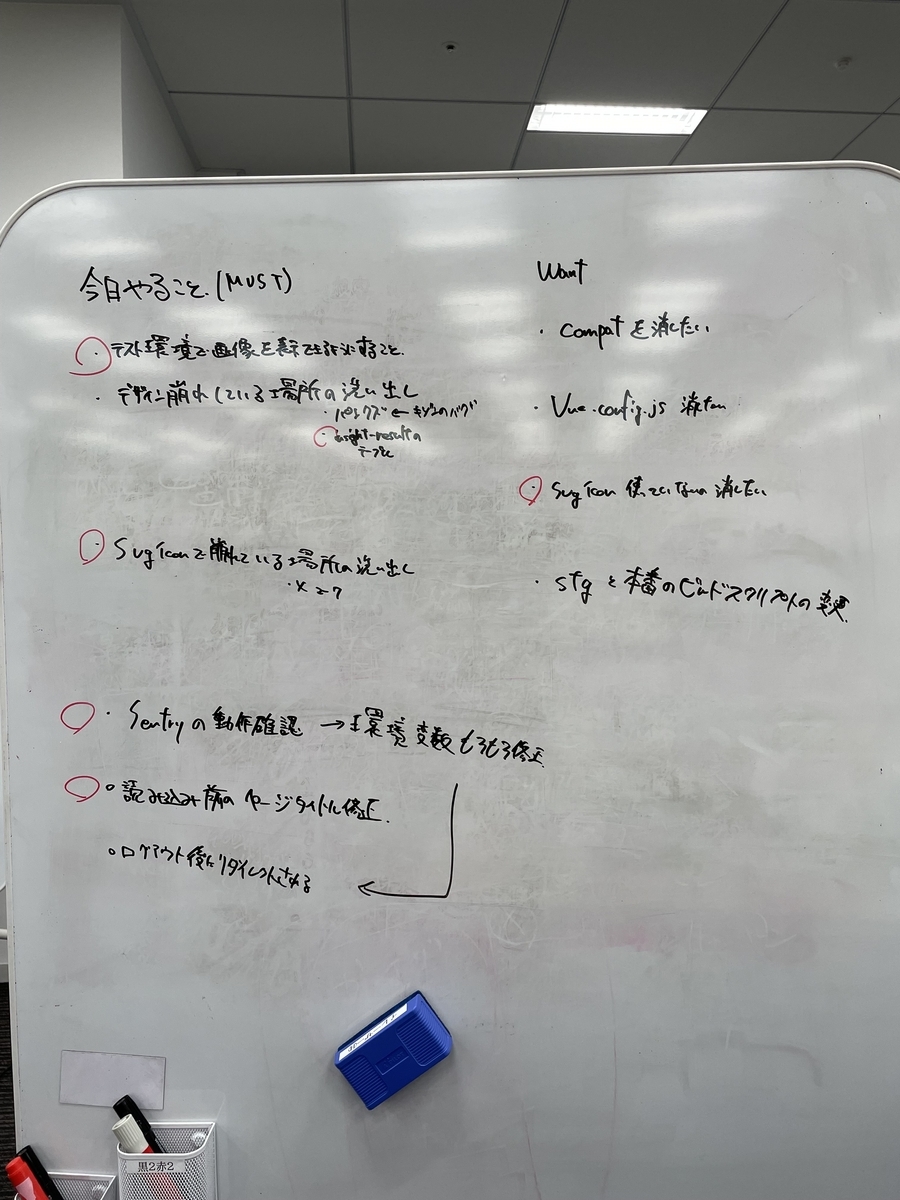 今日やること.(MUST)
・テスト環境で画像を表示できるようにすること.
・デザイン崩れしている場所の洗い出し
・パンくず ← キジュンのバグ
・insight-resultの
テーブル
・SvgIconで崩れている場所の洗い出し
・Sentryの動作確認 → 環境変数もろもろ修正
・読み込み前のページタイトル修正.
・ログアウト後にリダイレクトさせる
Want
・Compatを消したい
・Vue.config.js 消したい
・SvgIcon 使っていないの消したい
・stgと本番のビルドスクリプトの変更.
黒2赤2